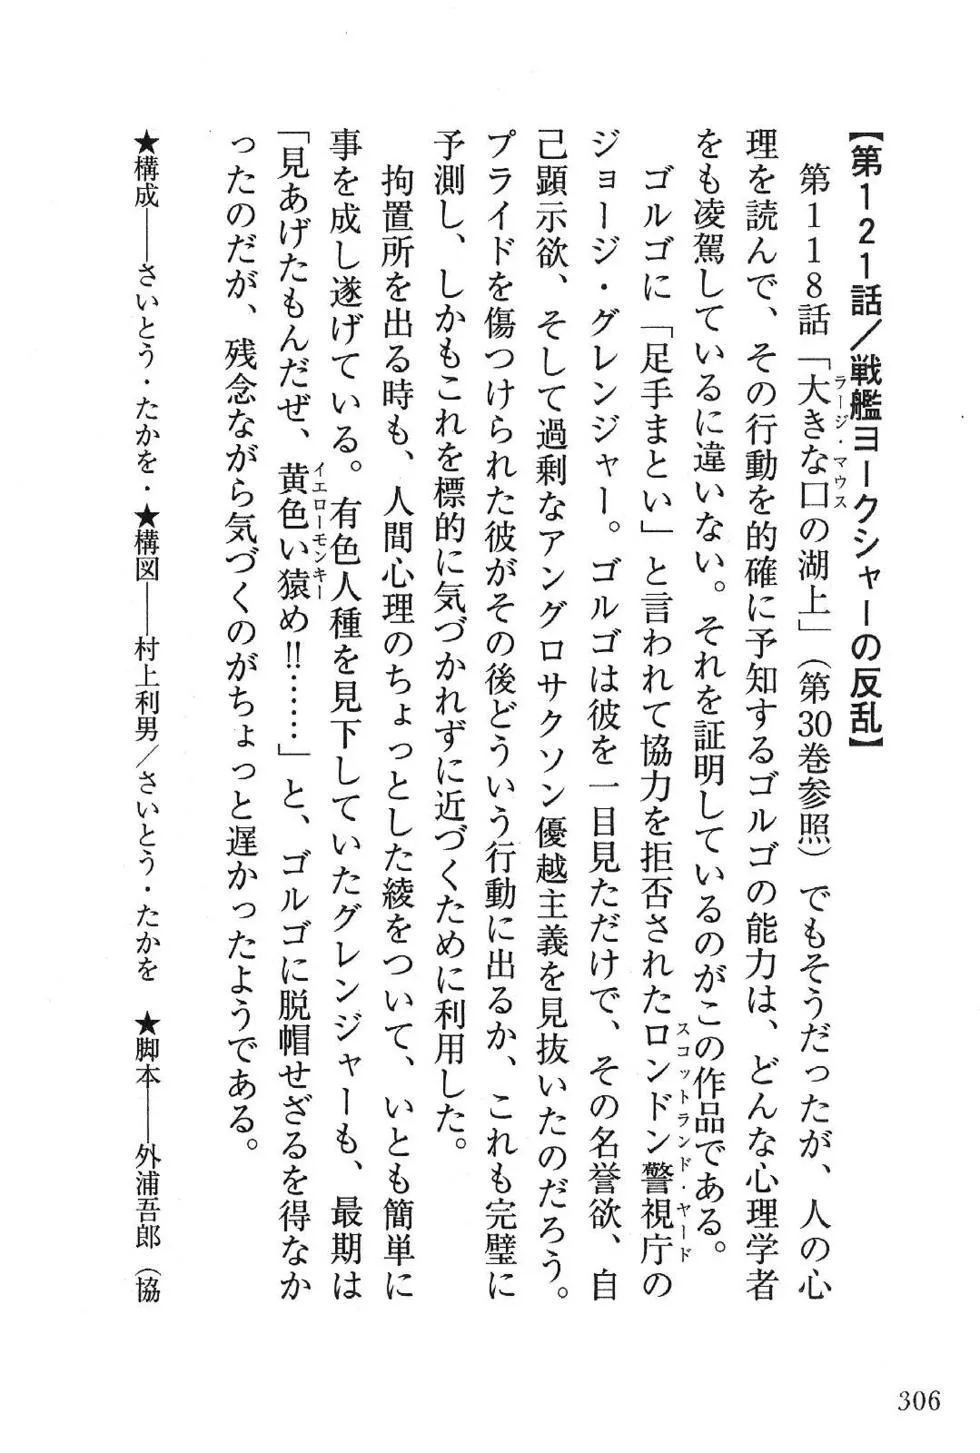 【第121話／戦艦ヨークシャーの反乱】
第118話「大きな口の湖上」（第30巻参照）でもそうだったが、人の心
ラージ・マウス
理を読んで、その行動を的確に予知するゴルゴの能力は、どんな心理学者
をも凌駕しているに違いない。それを証明しているのがこの作品である。
ゴルゴに「足手まとい」と言われて協力を拒否されたロンドン警視庁の
スコットランド・ヤード
ジョージ・グレンジャー。ゴルゴは彼を一目見ただけで、その名誉欲、自
己顕示欲、そして過剰なアングロサクソン優越主義を見抜いたのだろう。
プライドを傷つけられた彼がその後どういう行動に出るか、これも完璧に
予測し、しかもこれを標的に気づかれずに近づくために利用した。
拘置所を出る時も、人間心理のちょっとした綾をついて、いとも簡単に
事を成し遂げている。有色人種を見下していたグレンジャーも、最期は
「見あげたもんだぜ、黄色い猿め!!……」と、ゴルゴに脱帽せざるを得なか
イエローモンキー
ったのだが、残念ながら気づくのがちょっと遅かったようである。
★構成——さいとう・たかを・★構図——村上利男／さいとう・たかを ★脚本——外浦吾郎（協
306